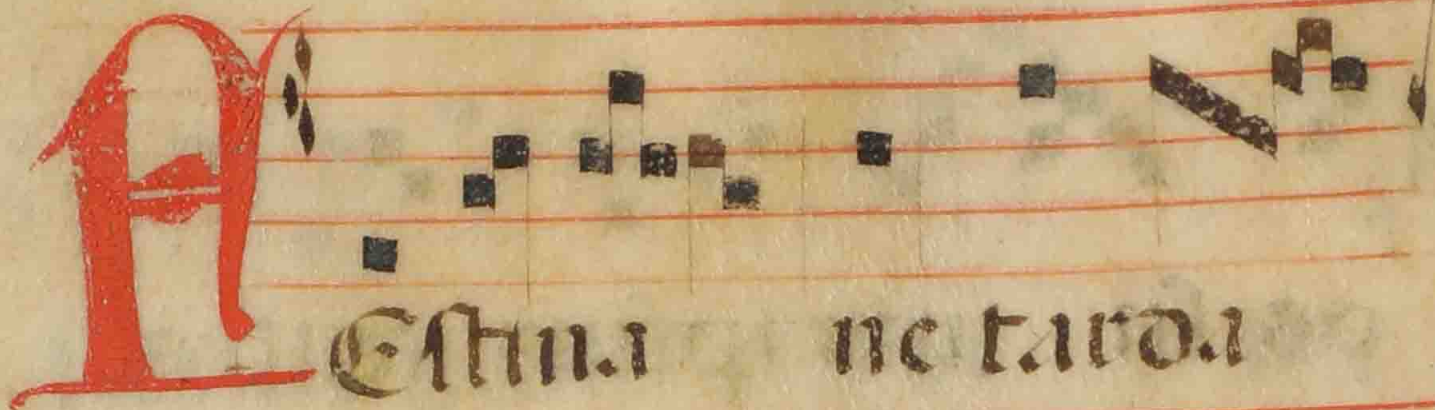 FEstina ne tarda